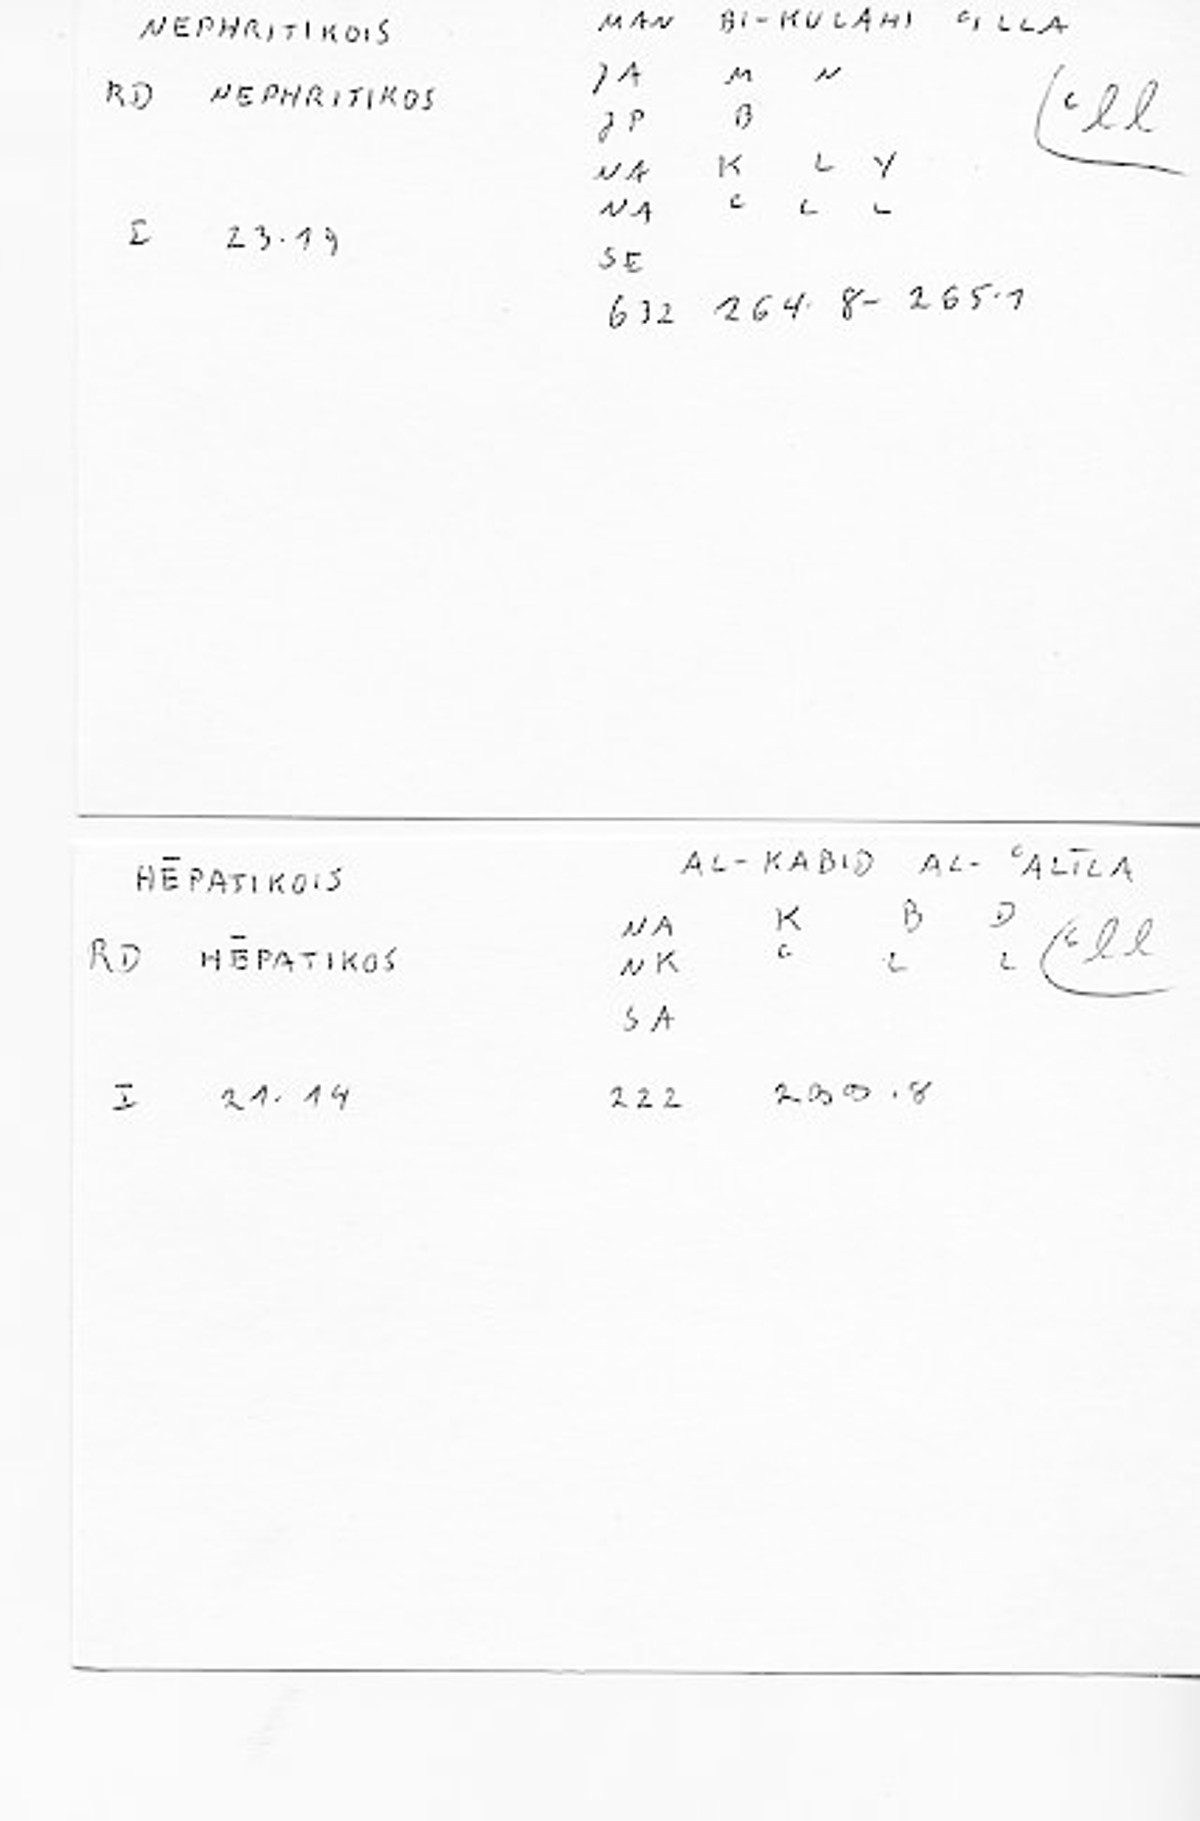 NEPHRITIKOIS MAN BI-KULĀHI ʿILLA
RD NEPHRITIKOS JA M N
JP B
ʿll
NA K L Y
NA ʿ L L
I 23.19
SE
632 264.8-265.1
HĒPATIKOIS AL-KABID AL-ʿALĪLA
NA K B D
RD HĒPATIKOS NK ʿ L L
ʿll
SA
I 21.14 222 230.8